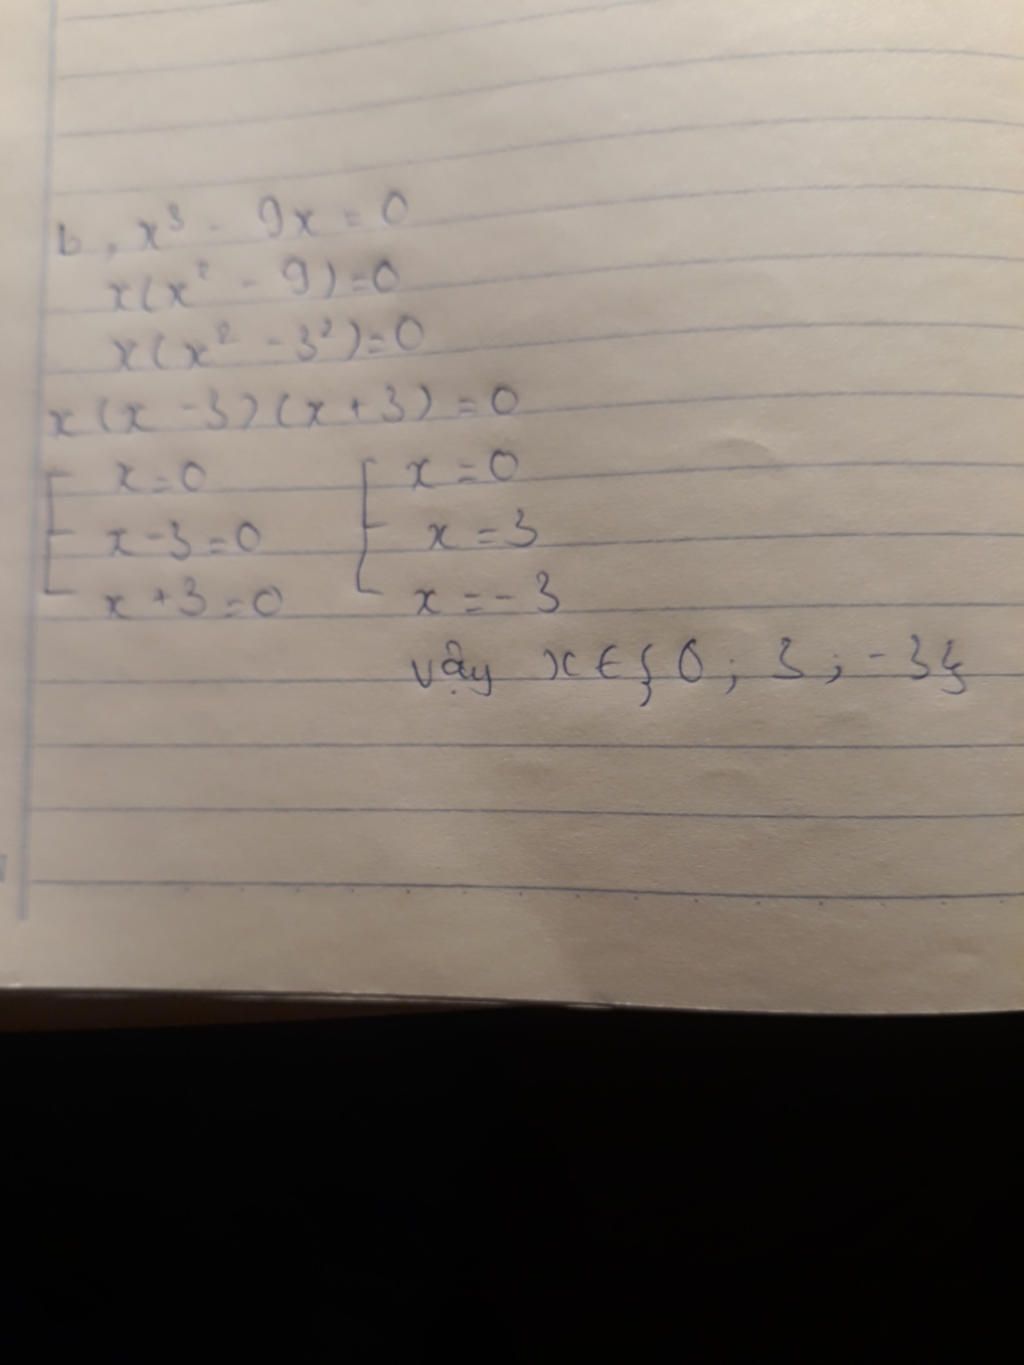 b, x³ - 9x = 0
x(x² - 9) = 0
x(x² - 3²) = 0
x(x - 3)(x + 3) = 0
x = 0 x = 0
x - 3 = 0 x = 3
x + 3 = 0 x = -3
vậy x ∈ { 0 ; 3 ; -3 }